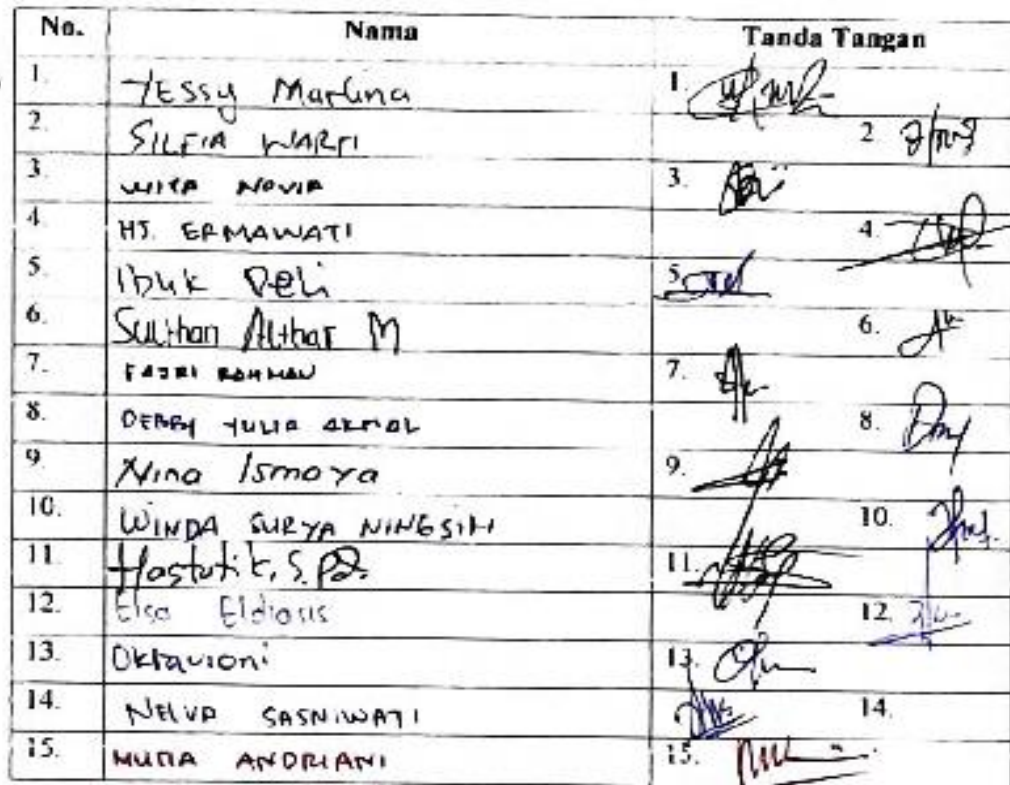 No. Nama Tanda Tangan
1. Yessy Marlina 1.
2. SILFIA WARTI 2.
3. WITA NOVIA 3.
4. HJ. ERMAWATI 4.
5. Ibuk Deli 5.
6. Sulthan Althar M 6.
7. FAJRI RAHMAN 7.
8. DEBBY YULIA AKMAL 8.
9. Nina Ismaya 9.
10. WINDA SURYA NINGSIH 10.
11. Hastutik, S.Pd. 11.
12. Elsa Eldiasis 12.
13. Oktavioni 13.
14. NELVA SASNIWATI 14.
15. MUTIA ANDRIANI 15.